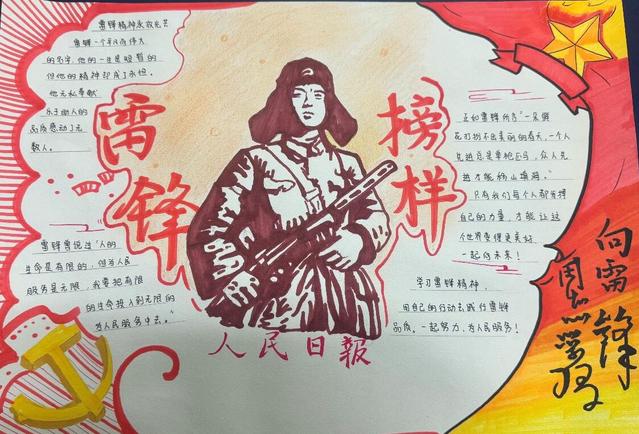 雷锋精神永放光芒
雷锋一个平凡而伟大
的名字,他的一生是短暂的
但他的精神却成了永恒。
他无私奉献
乐于助人的
品质感动了无
数人。
雷锋
雷锋曾说过"人的
生命是有限的,但为人民
服务是无限,我要把有限
的生命投入到无限的
为人民服务中去。"
人民日報
榜样
正如雷锋所言"一朵鲜
花打扮不出美丽的春天,一个人
先进总是单枪匹马,众人先
进才能移山填海。"
只有我们每个人都发挥
自己的力量,才能让这
个世界变得更美好,
一起向未来!
学习雷锋精神,
用自己的行动去践行雷锋
品质。一起努力,为人民服务!
向雷锋
同志学习